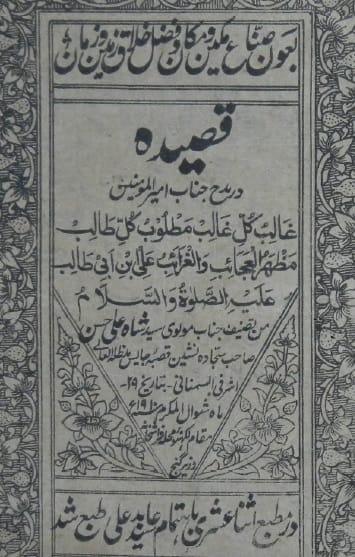 بعون صناع مکین و مکان و فضل خلاق زمین و زمان
قصیدہ
در مدح جناب امیر المومنین
غَالِبُ کُلِّ غَالِبْ مَطْلُوبُ کُلِّ طَالِبْ
مَظْہَرُ الْعَجَائِبِ وَالْغَرَائِبِ عَلِیُّ بْنُ اَبِیْ طَالِبْ
عَلَیْہِ الصَّلٰوۃُ وَالسَّلَامُ
من تصنیف جناب مولوی سید شاہ علی حسن
صاحب سجادہ نشین قصبہ جایس مدظلہ العالی
اشرفی السمنانی - بتاریخ ۲۹
ماہ شوال المکرم
مقام لکھنؤ محلہ
وزیر گنج
در مطبع اثنا عشری باہتمام سید عابد علی طبع شد